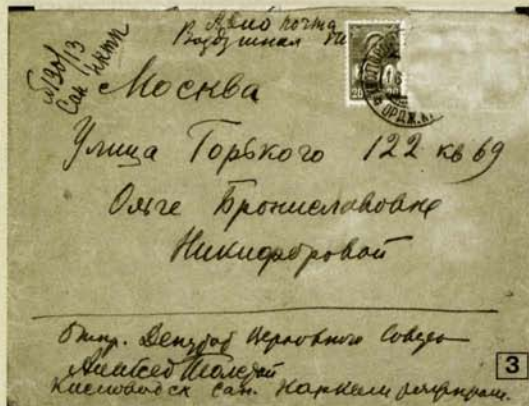 Авио почта
Воздушная
№130/13
Сан нктп
Москва
Улица Горького 122 кв 69
Ольге Брониславовне
Никифоровой
20 20
ОРДЖ.К
Отпр. Депутат Верховного Совета
Алексей Толстой
Кисловодск сан.
3